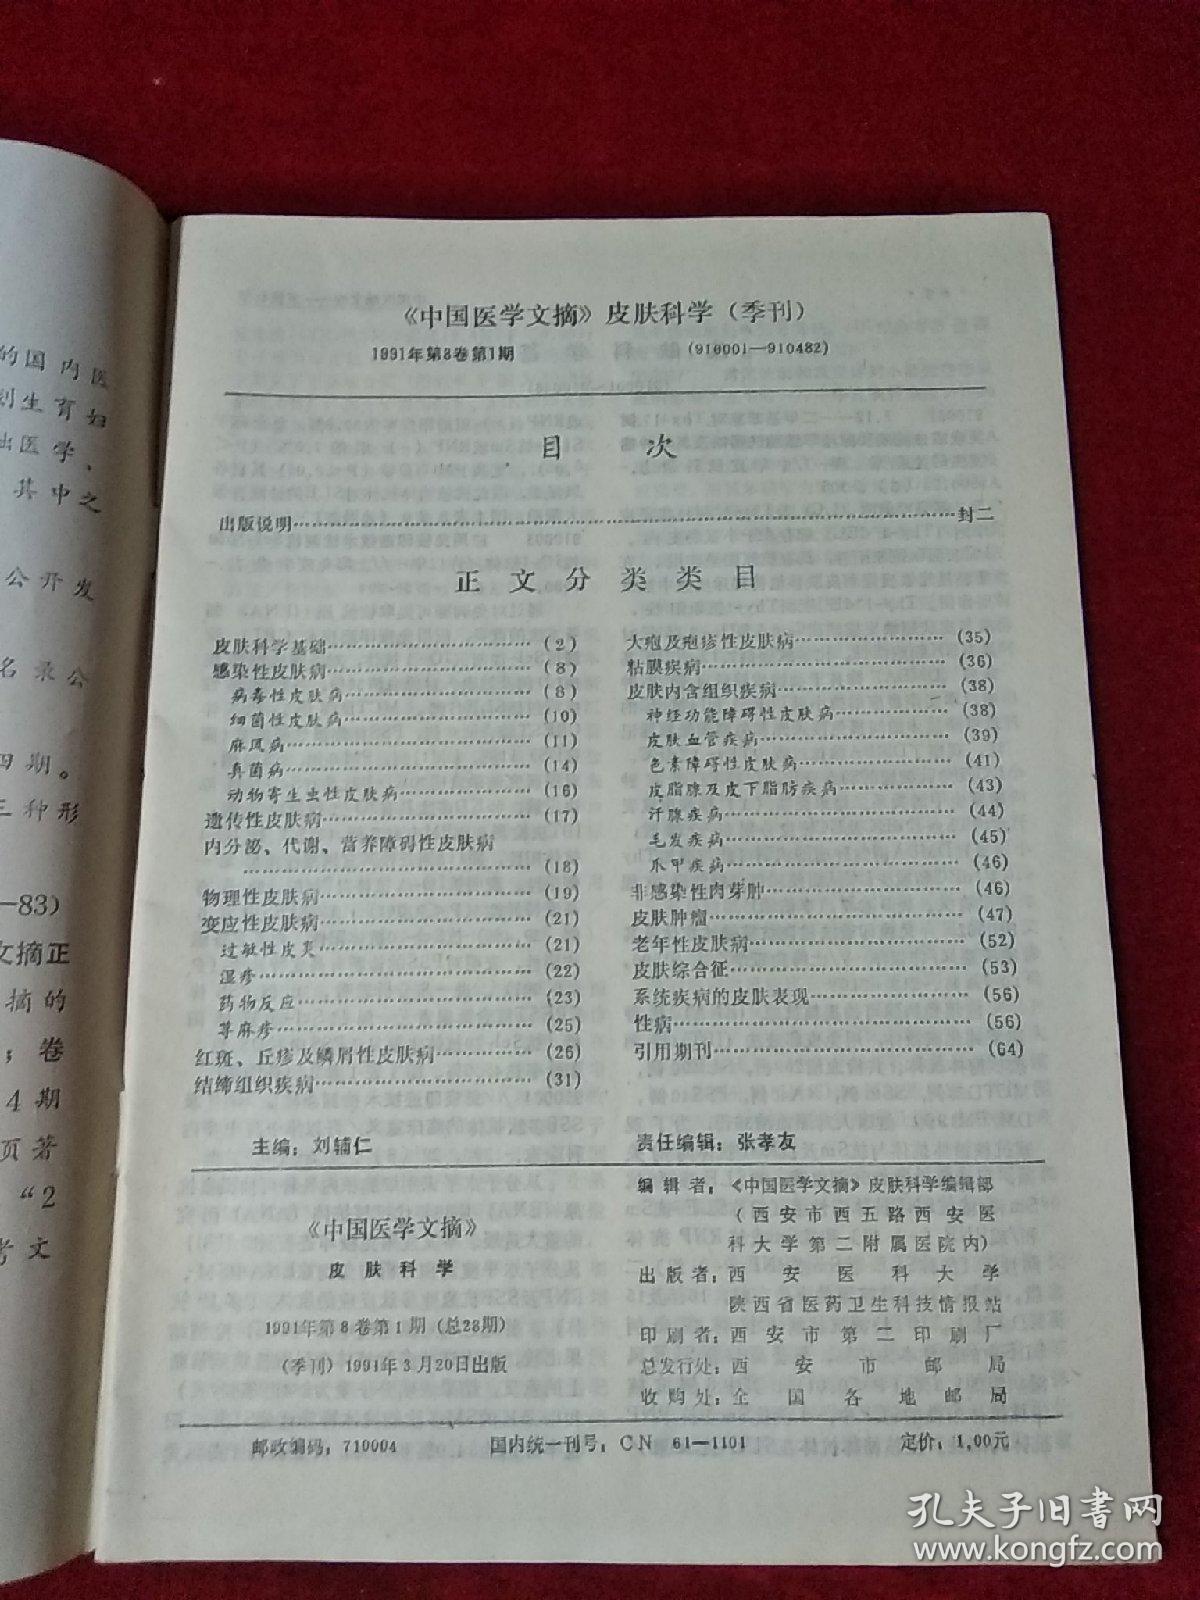 的国内医
划生育妇
出医学、
其中之
公开发
名录公
四期。
三种形
—83)
文摘正
摘的
；卷
4期
页著
“2
考文
《中国医学文摘》皮肤科学（季刊）
1991年第8卷第1期 (910001—910482)
目 次
出版说明……封二
正文分类类目
皮肤科学基础……(2)
感染性皮肤病……(8)
病毒性皮肤病……(8)
细菌性皮肤病……(10)
麻风病……(11)
真菌病……(14)
动物寄生虫性皮肤病……(16)
遗传性皮肤病……(17)
内分泌、代谢、营养障碍性皮肤病
……(18)
物理性皮肤病……(19)
变应性皮肤病……(21)
过敏性皮炎……(21)
湿疹……(22)
药物反应……(23)
荨麻疹……(25)
红斑、丘疹及鳞屑性皮肤病……(26)
结缔组织疾病……(31)
大疱及疱疹性皮肤病……(35)
粘膜疾病……(36)
皮肤内含组织疾病……(38)
神经功能障碍性皮肤病……(38)
皮肤血管疾病……(39)
色素障碍性皮肤病……(41)
皮脂腺及皮下脂肪疾病……(43)
汗腺疾病……(44)
毛发疾病……(45)
爪甲疾病……(46)
非感染性肉芽肿……(46)
皮肤肿瘤……(47)
老年性皮肤病……(52)
皮肤综合征……(53)
系统疾病的皮肤表现……(56)
性病……(56)
引用期刊……(64)
主编：刘辅仁 责任编辑：张孝友
《中国医学文摘》
皮肤科学
1991年第8卷第1期（总28期）
（季刊）1991年3月20日出版
编辑者：《中国医学文摘》皮肤科学编辑部
（西安市西五路西安医
科大学第二附属医院内）
出版者：西安医科大学
陕西省医药卫生科技情报站
印刷者：西安市第二印刷厂
总发行处：西安市邮局
收购处：全国各地邮局
邮政编码：710004 国内统一刊号：CN 61—1101 定价：1.00元
孔夫子旧书网
www.kongfz.com